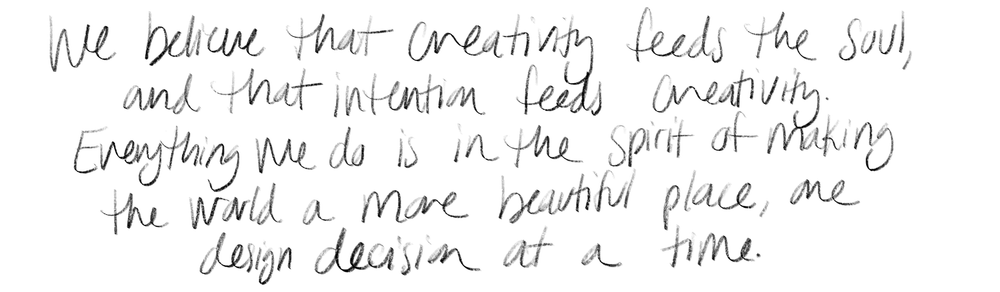 We believe that creativity feeds the soul,
and that intention feeds creativity.
Everything we do is in the spirit of making
the world a more beautiful place, one
design decision at a time.